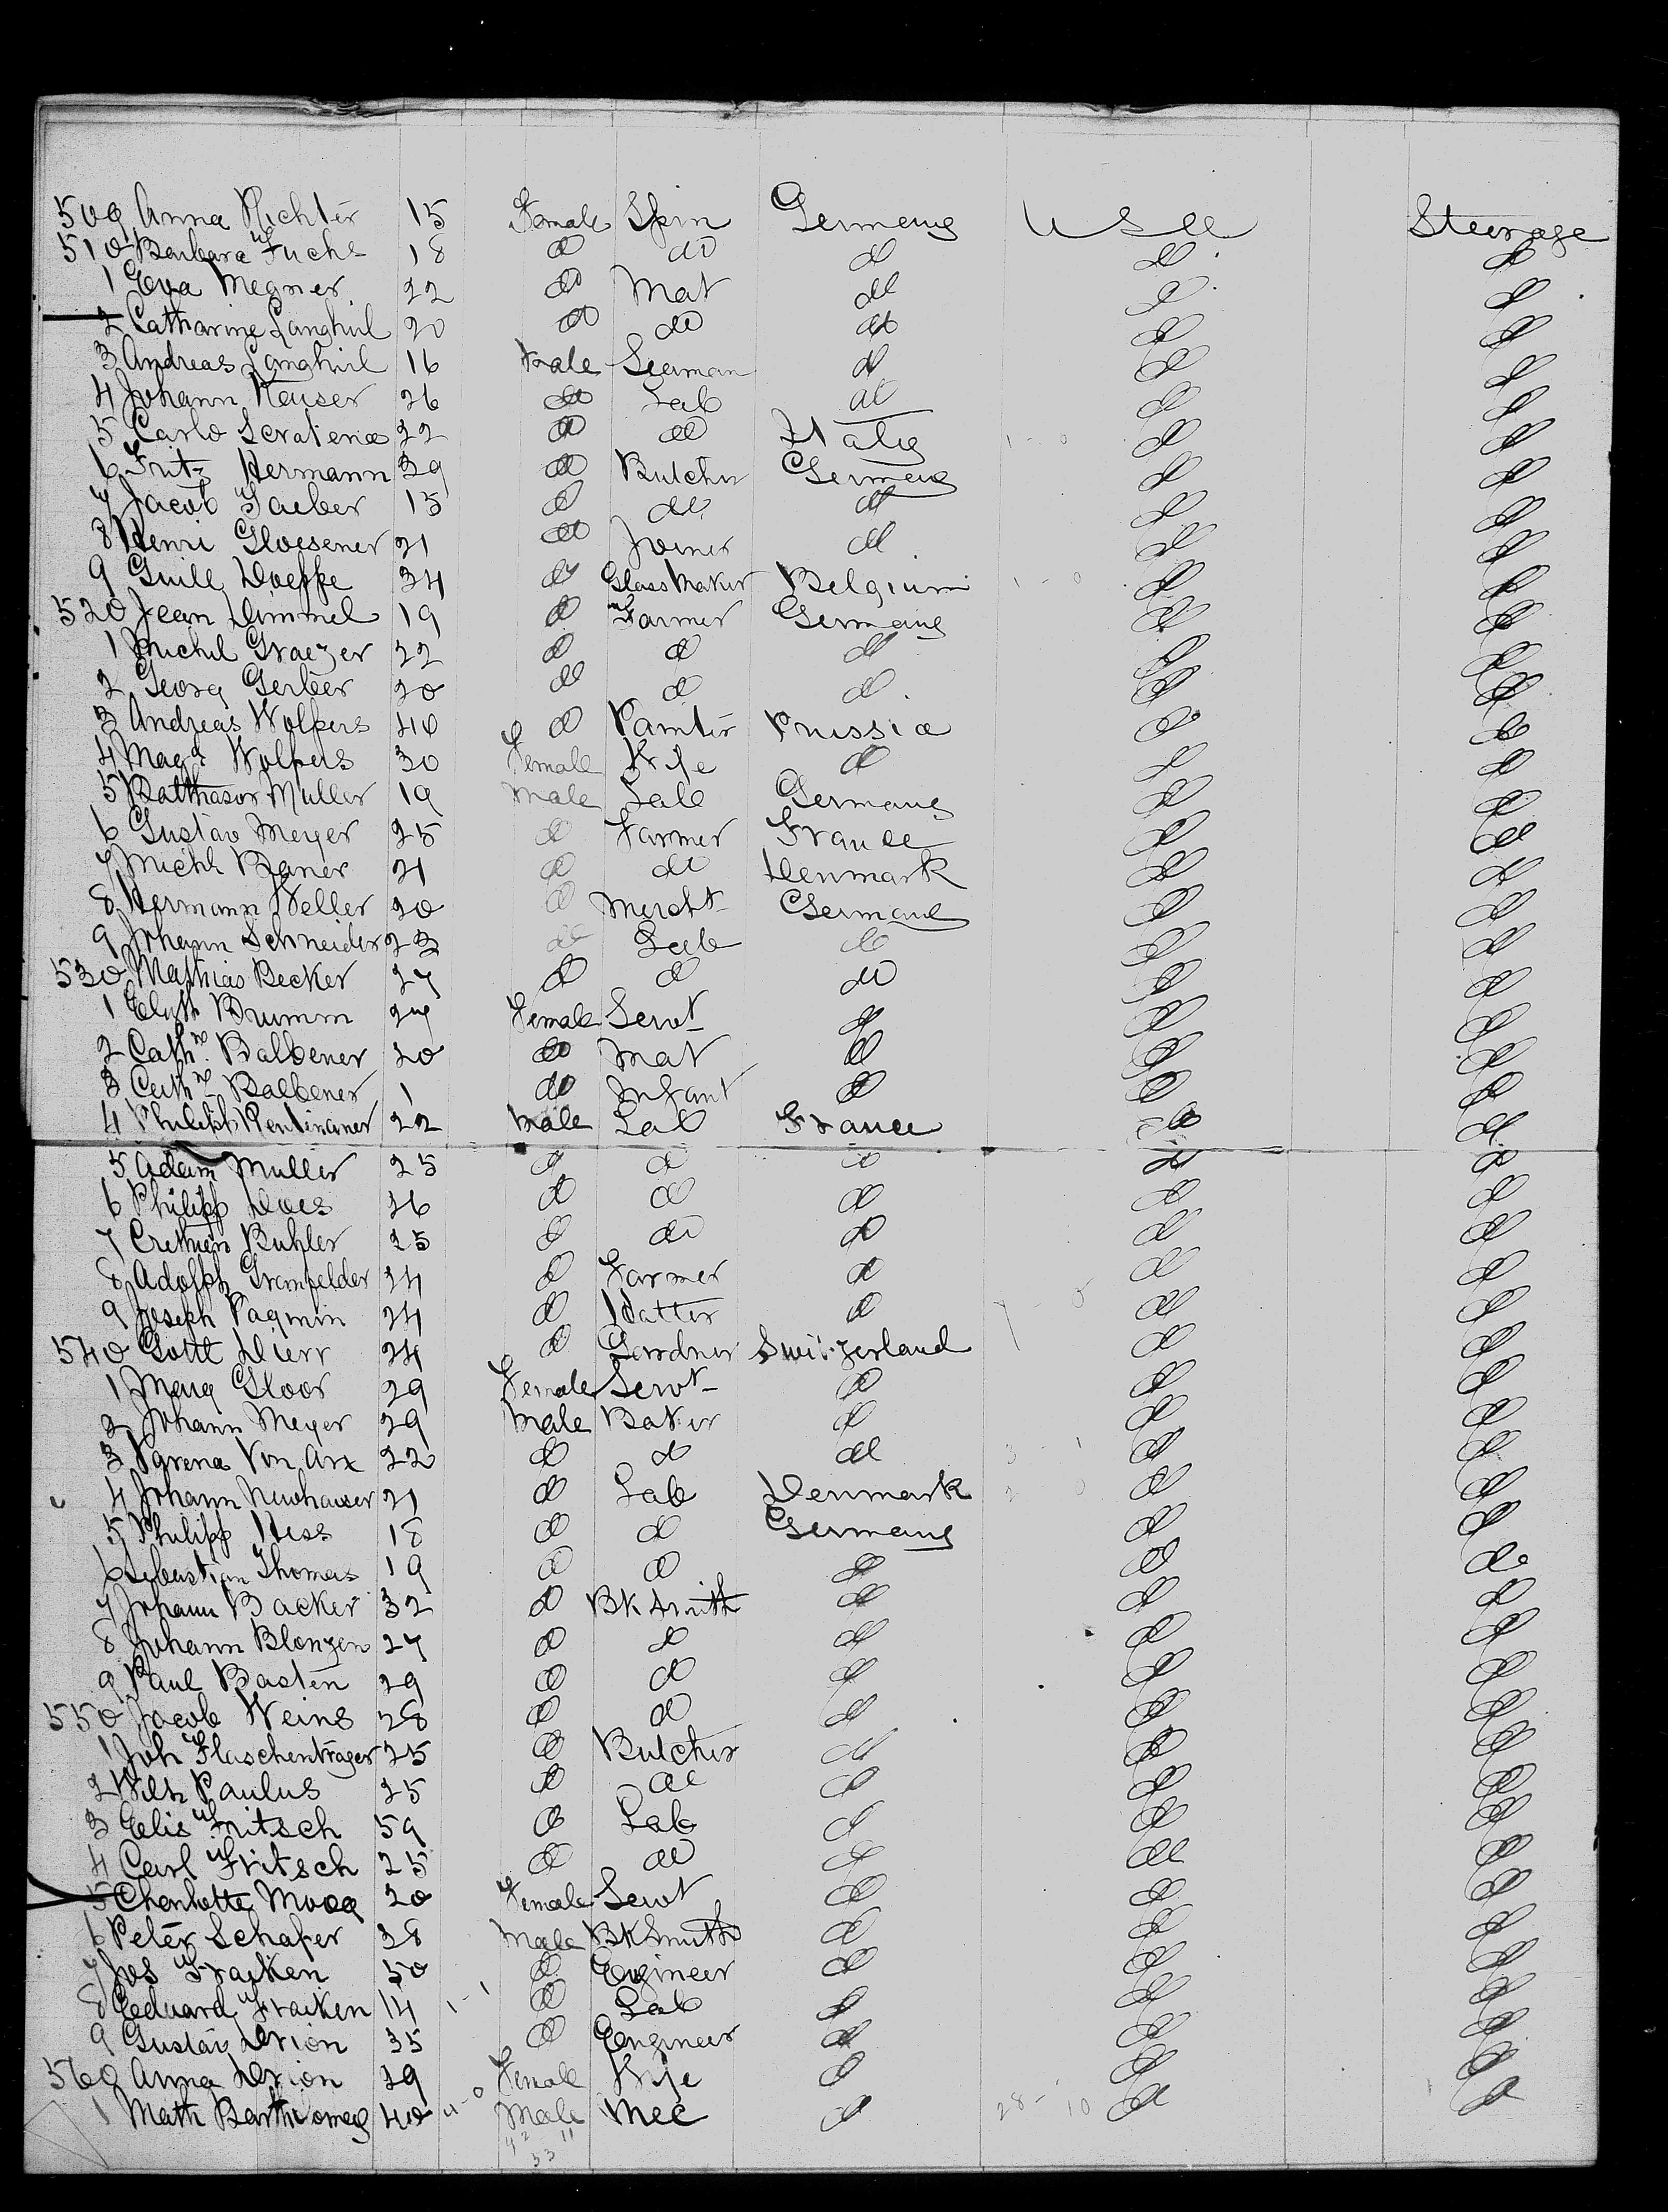 509 Anna Richter 15 Female Spin Germany U S A Steerage
510 Barbara Fuchs 18 do do do do do
1 Eva Megner 22 do Mat do do do
2 Catharine Langhirl 20 do do do do do
3 Andreas Langhirl 16 Male Seaman do do do
4 Johann Kauser 26 do Lab do do do
5 Carlo 22 do do Italy do do
6 Fritz Hermann 39 do Butcher Germany do do
7 Jacob Faeber 15 do do do do do
8 Henri Gloesener 21 do Joiner do do do
9 Guill Doeppe 34 do Glass Maker Belgium do do
520 Jean Dimmel 19 do Farmer Germany do do
1 Michel Graezer 22 do do do do do
2 Georg Gerber 20 do do do do do
3 Andreas Wolpers 40 do Painter Prussia do do
4 Magd Wolpers 30 Female Wife do do do
5 Balthasar Muller 19 Male Lab Germany do do
6 Gustav Meyer 25 do Farmer France do do
7 Michl 21 do do Denmark do do
8 Hermann Weller 20 do Mercht Germany do do
9 Johann Schneider 23 do Lab do do do
530 Mathias Becker 27 do do do do do
1 Elisth Brumm 24 Female Servt do do do
2 Cathne Balbener 20 do Mat do do do
3 Cathne Balbener 1 do Infant do do do
4 Philipp 22 Male Lab France do do
5 Adam Muller 25 do do do do do
6 Philipp Does 26 do do do do do
7 Buhler 25 do do do do do
8 Adolph Gramfelder 24 do Farmer do do do
9 Joseph Pagmin 24 do Hatter do do do
540 Gottl Dierr 24 do Gardner Switzerland do do
1 Mary Gloor 29 Female Servt do do do
2 Johann Meyer 29 Male Baker do do do
3 Varena Von Arx 22 do do do do do
4 Johann Neuhauser 21 do Lab Denmark do do
5 Philipp Hess 18 do do Germany do do
6 Sebastian Thomas 19 do do do do do
7 Johann Backer 32 do Bk Smith do do do
8 Johann Blonzen 27 do do do do do
9 Paul Basten 29 do do do do do
550 Jacob Weins 28 do do do do do
1 Joh Flaschentrager 25 do Butcher do do do
2 Wilh Paulus 25 do do do do do
3 Elis Fritsch 59 do Lab do do do
4 Carl Fritsch 25 do do do do do
5 Charlotte Mooq 20 Female Servt do do do
6 Peter Schafer 38 Male Bk Smith do do do
7 Jos Fraiken 50 do Engineer do do do
8 Eduard Fraiken 14 do Lab do do do
9 Gustav Drion 35 do Engineer do do do
560 Anna Drion 29 Female Wife do do do
1 Math Bartholomey 40 Male Mec do do do